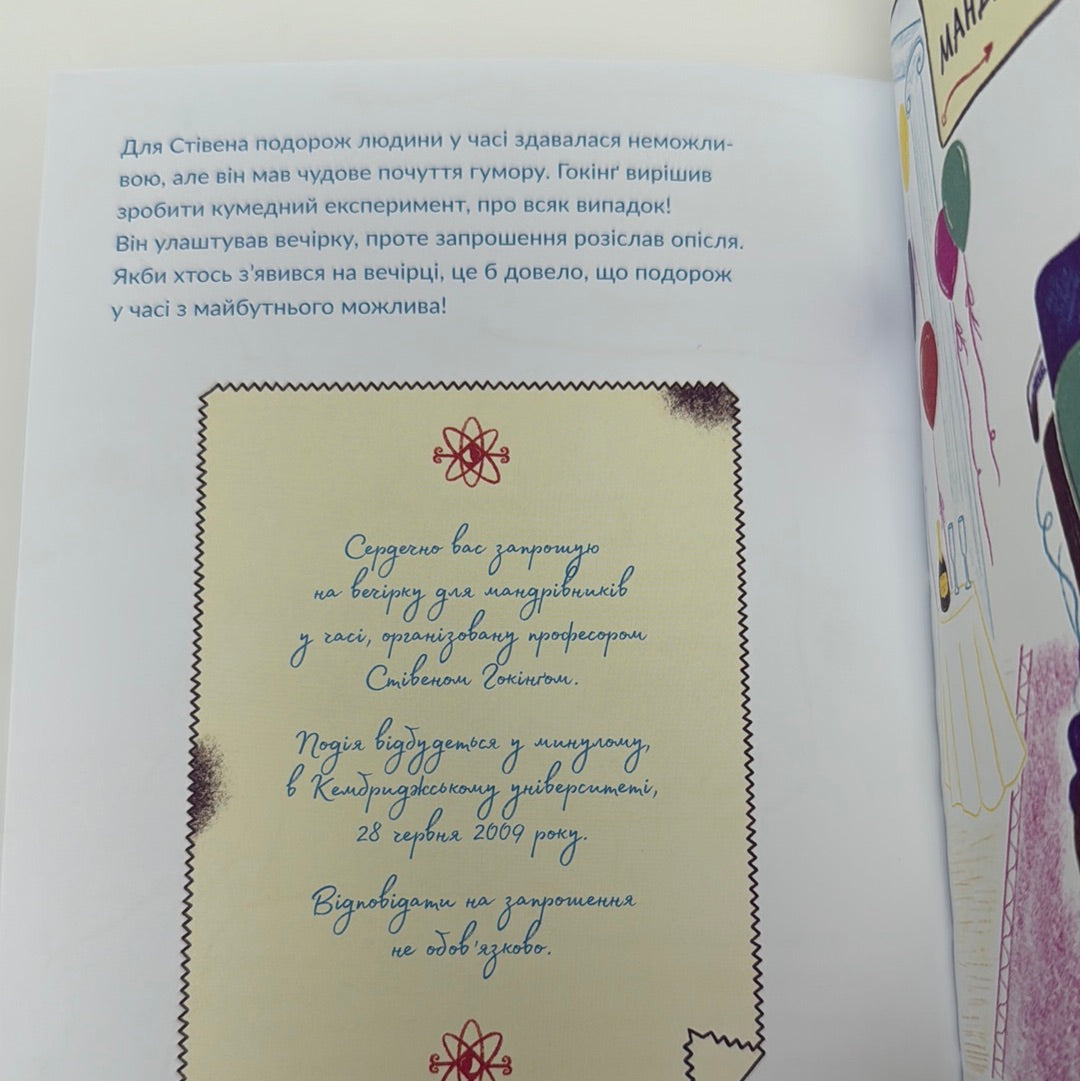 Для Стівена подорож людини у часі здавалася неможли-
вою, але він мав чудове почуття гумору. Гокінґ вирішив
зробити кумедний експеримент, про всяк випадок!
Він улаштував вечірку, проте запрошення розіслав опісля.
Якби хтось з’явився на вечірці, це б довело, що подорож
у часі з майбутнього можлива!
Сердечно вас запрошую
на вечірку для мандрівників
у часі, організовану професором
Стівеном Гокінґом.
Подія відбудеться у минулому,
в Кембриджському університеті,
28 червня 2009 року.
Відповідати на запрошення
не обов'язково.